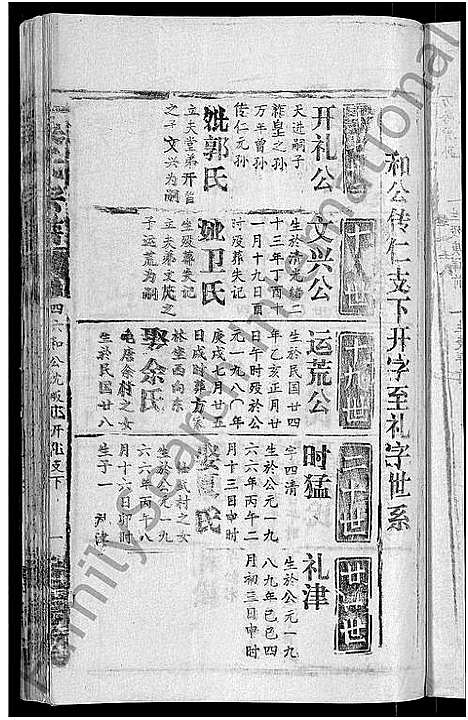 和公传仁支下开字至礼字世系
开礼公
天进嗣子
祚皇之孙
万年曾孙
传仁元孙
妣郭氏
立夫堂弟开
之子文兴为嗣
十八世
文兴公
生於清光绪二
十三年丁酉十
一月十九日酉
时殁葬失记
妣卫氏
生殁葬失记
立夫弟文英之
子运荒为嗣
十九世
运荒公
生於民国廿四
年乙亥正月廿
日午时殁於公
元一九八〇年
庚戌七月廿五
日戌时葬方家
林坐西向东
娶余氏
屯唐余村之女
生於民国廿八
二十世
时猛
字四清
生於公元一九
六六年丙午二
月十三日申时
娶 氏
村之女
生於公元一九
六六年丙午八
月十六日卯时
生子一 礼津
廿一世
礼津
生於公元一九
八九年己巳四
月初三日申时
FamilySearch International